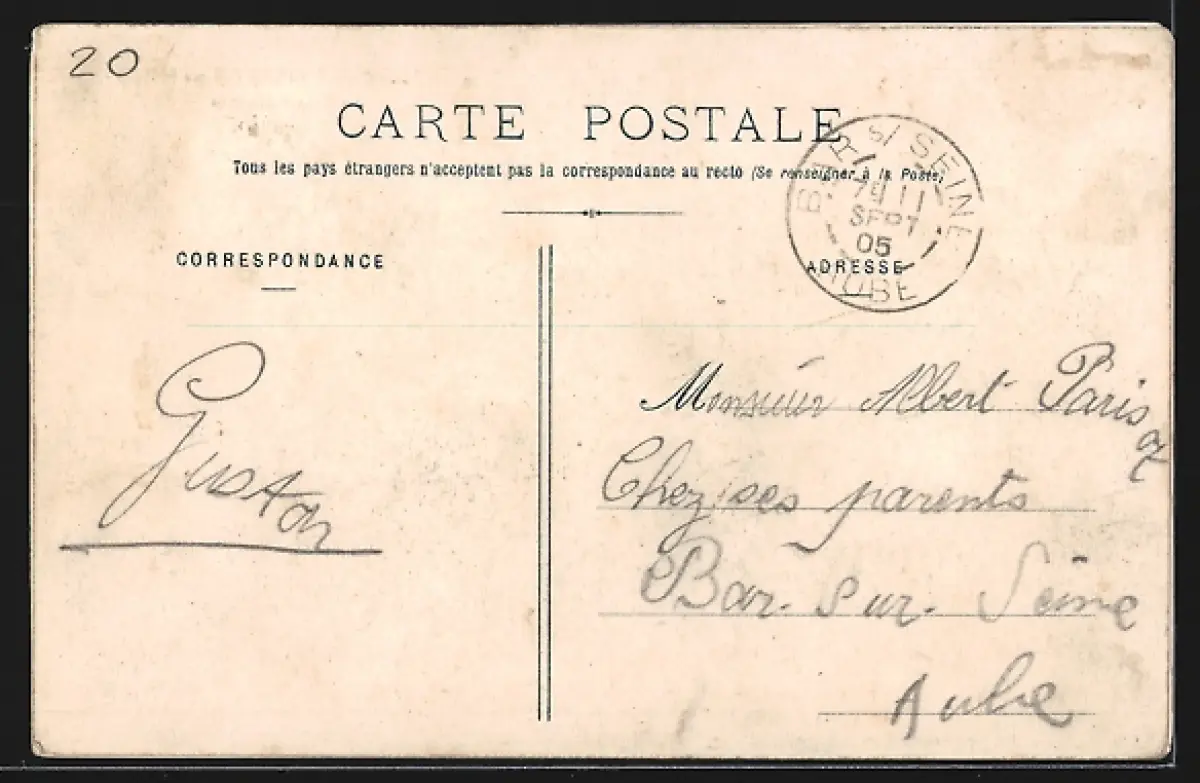 20
CARTE POSTALE
Tous les pays étrangers n'acceptent pas la correspondance au recto (Se renseigner à la Poste)
BAR S/ SEINE
11
SEPT
05
AUBE
CORRESPONDANCE
ADRESSE
Gaston
Monsieur Albert Paris
Chez ses parents
Bar-sur-Seine
Aube